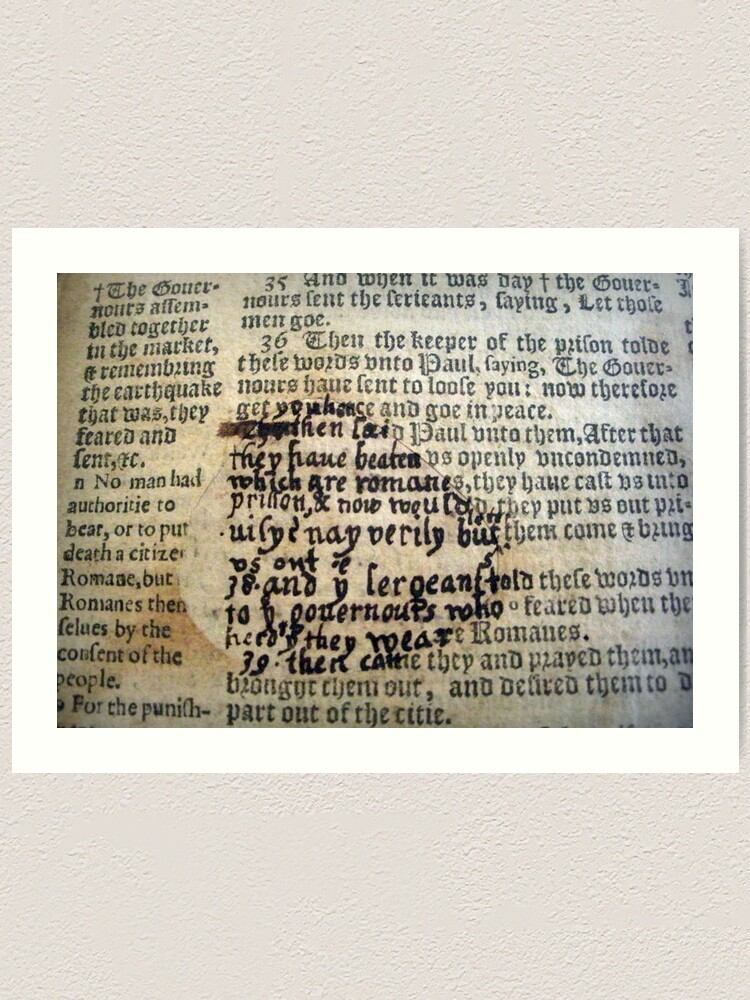 †The Gouer-
nours aſſem-
bled together
in the market,
& remembring
the earthquake
that was, they
feared and
ſent, &c.
n No man had
authoritie to
bear, or to put
death a citize
Romane, but
Romanes then
ſelues by the
conſent of the
people.
For the puniſh-
35 And when it was day † the Gouer-
nours ſent the ſerieants, ſaying, Let thoſe
men goe.
36 Then the keeper of the priſon tolde
theſe words vnto Paul, ſaying, The Gouer-
nours haue ſent to looſe you: now therefore
get you hence and goe in peace.
then ſaid Paul vnto them, After that
they haue beaten vs openly vncondemned,
which are romanes, they haue caſt vs into
priſſon, & now would they put vs out pri-
uilye nay verily but them come & bring
vs out
38. and ẏ ſergeants told theſe words vn
to ẏ gouernours who feared when the
they weare Romanes.
39. then came they and prayed them, an
brought them out, and deſired them to d
part out of the citie.